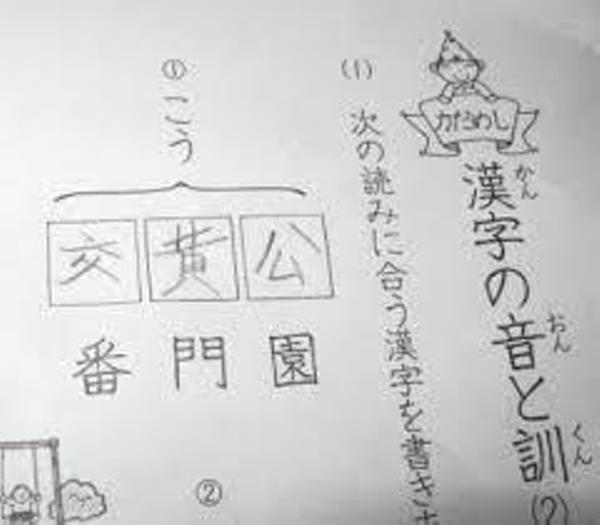 力だめし
漢字の音と訓(2)
かん
おん
くん
(1)
次の読みに合う漢字を書きま
①
こう
公園
黄門
交番
②